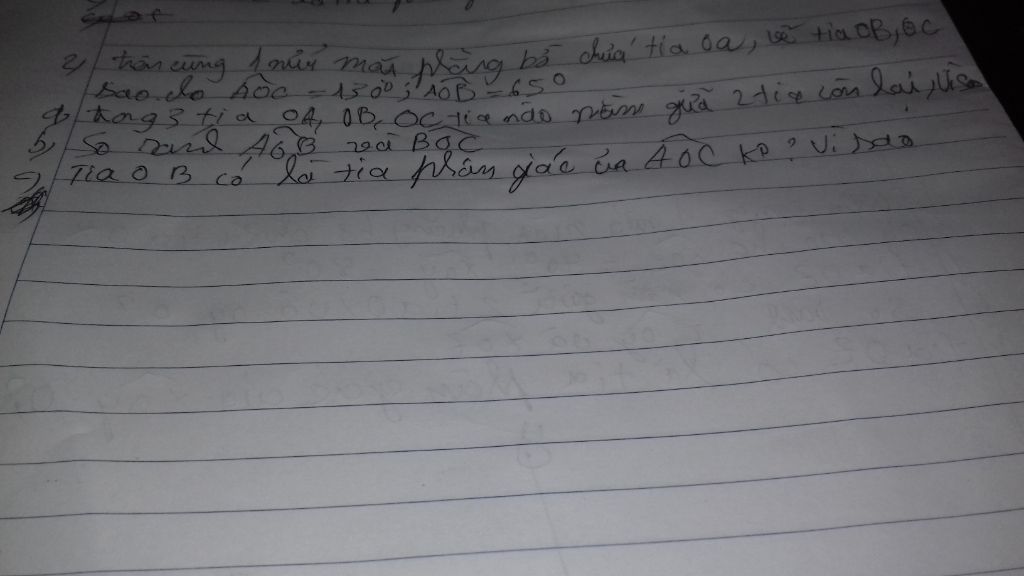 2) trên cùng 1 nửa mặt phẳng bờ chứa tia Oa, vẽ tia OB, OC
sao cho AÔC = 130⁰; AÔB = 65⁰
a, trong 3 tia OA, OB, OC tia nào nằm giữa 2 tia còn lại, vì sao
b, So sánh AÔB và BÔC
c, Tia OB có là tia phân giác của AÔC ko? Vì sao